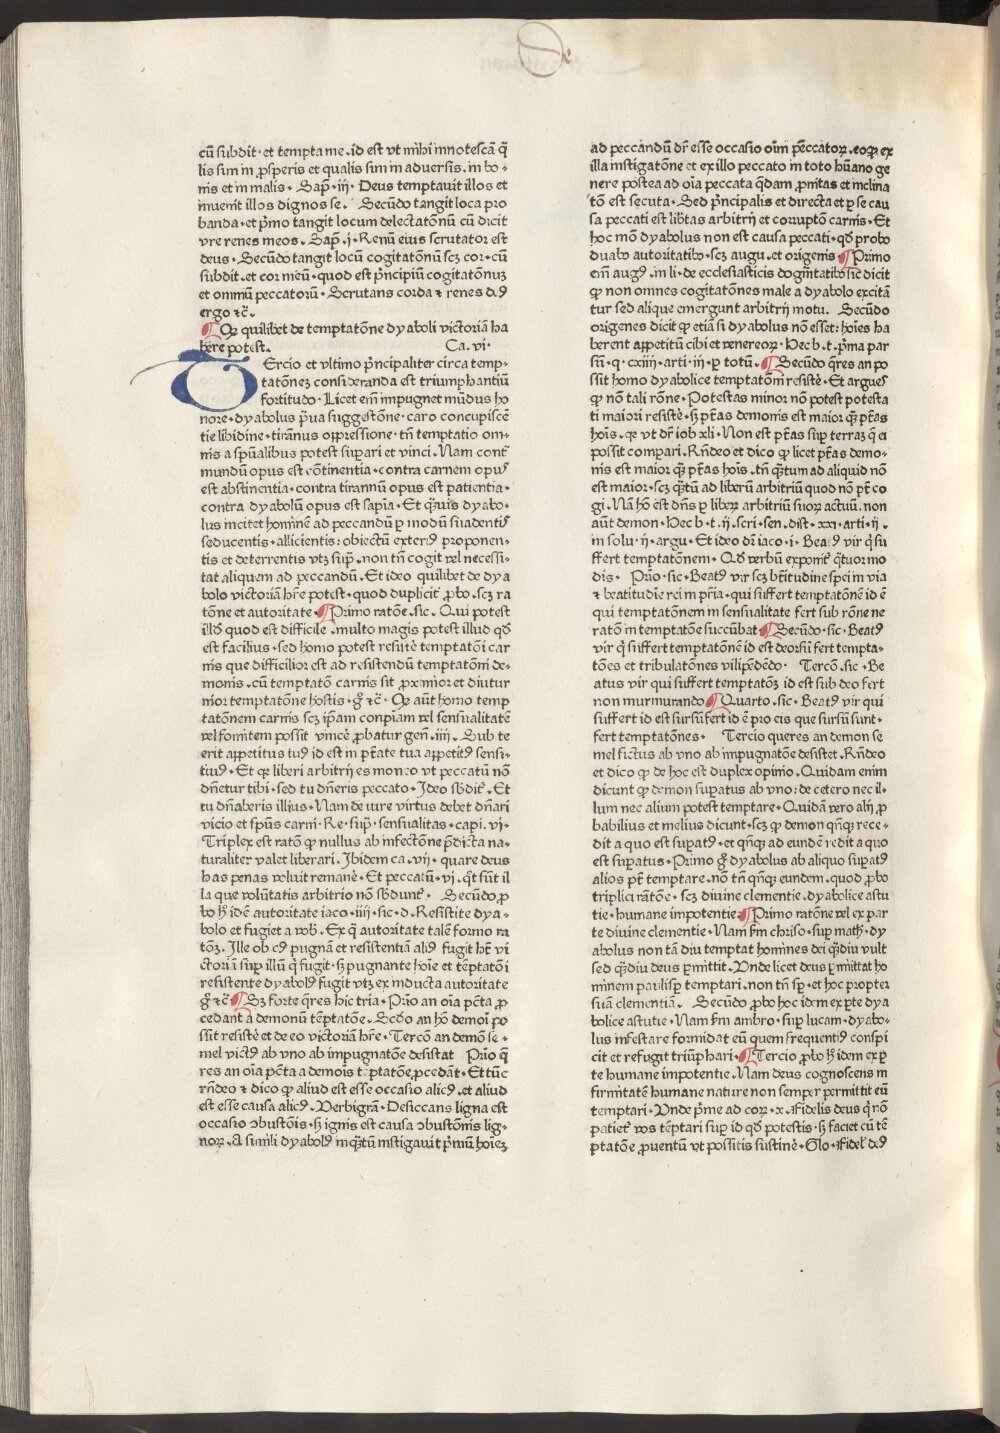 De
cū subdit · et tempta me . id est vt mihi innotescā q̄
lis sim in ꝓsperis et qualis sim in adversis . in bo ·
nis et in malis · Sap̄ · iii · Deus temptauit illos et
inuenit illos dignos se · Secūdo tangit loca pro
banda · et p̄mo tangit locum delectatōnū cū dicit
vre renes meos · Sap̄ . i · Renū eius scrutator est
deus · Secūdo tangit locū cogitatōnū scꝫ cor · cū
subdit . et cor meū · quod est p̄ncipiū cogitatōnuꝫ
et omniū peccatorū · Scrutans corda ⁊ renes dꝰ
ergo ⁊c̄ .
¶ Qꝛ quilibet de temptatōne dyaboli victoriā ha
bere potest . Ca . vi ·
Tercio et vltimo p̄ncipaliter circa temp ·
tatōneꝫ consideranda est triumphantiū
fortitudo · Licet em̄ impugnet mūdus ho
nore · dyabolus p̄ua suggestōne · caro concupiscē
tie libidine · tirānus oppressione · tn̄ temptatio om ·
nis a spūalibus potest supari et vinci . Nam cont̄
mundū opus est cōtinentia · contra carnem opus
est abstinentia · contra tirannū opus est patientia ·
contra dyabolū opus est sapīa · Et q̄uis dyabo ·
lus incitet hominē ad peccandū ꝑ modū suadentis
seducentis · allicientis : obiectū exterꝰ proponen ·
tis et deterrentis vtꝫ sup̄ . non tn̄ cogit vel necessi ·
tat aliquem ad peccandū . Et ideo quilibet de dya
bolo victoriā hr̄e potest · quod duplicit̄ ꝓbo . scꝫ ra
tōne et autoritate · ¶ Primo ratōe . sic . Qui potest
illꝰ quod est difficile . multo magis potest illud qd̄
est facilius · sed homo potest resistē temptatōi car
nis que difficilior est ad resistendū temptatōni de ·
monis . cū temptatō carnis sit ꝓximior et diutur
nior temptatōne hostis · g̊ ⁊c̄ · Qꝛ aūt homo temp
tatōnem carnis scꝫ ip̄am conpiam vel sensualitatē
vel fomitem possit vincē ꝓbatur gen̄ . iiii · Sub te
erit appetitus tuꝰ id est in p̄tate tua appetitꝰ sensi ·
tiuꝰ · Et qꝛ liberi arbitrij es moneo vt peccatū nō
dn̄etur tibi · sed tu dn̄eris peccato · Ideo sb̄dit̄ · Et
tu dn̄aberis illius · Nam de iure virtus debet dn̄ari
vicio et spūs carni · Re · sup̄ · sensualitas · capi . vi ·
Triplex est ratō ꝙ nullus ab infectōne p̄dicta na ·
turaliter valet liberari . Ibidem ca . vii · quare deus
has penas voluit remanē · Et peccatū · vi . q̊t sūt il
la que volūtatis arbitrio nō sb̄dunt̄ · Secūdo ꝓ
bo hͦ idē autoritate iaco · iiii · sic · d . Resistite dya ·
bolo et fugiet a vob̄ . Ex q̄ autoritate talē formo ra
tōꝫ . Ille ob cꝰ pugnā et resistentiā aliꝰ fugit hꝫ vi
ctoriā sup illū q̄ fugit · sꝫ pugnante hoīe et tēptatōi
resistente dyabolꝰ fugit vtꝫ ex inducta autoritate
g̊ ⁊c̄ ¶ Sꝫ forte q̄res hic tria · Prīo an oīa pc̄ta ꝓ
cedant a demonū tēptatōe . Scd̄o an hō demoī po
ssit resistē et de eo victoriā hr̄e · Tercō an demō se ·
mel victꝰ ab vno ab impugnatōe desistat Prīo q̄
res an oīa pc̄ta a demoīs tēptatōe ꝓcedāt · Et tūc
rn̄deo ⁊ dico ꝙ aliud est esse occasio alicꝰ . et aliud
est esse causa alicꝰ . Verbigrā · Desiccans ligna est
occasio ↄbustōis · sꝫ ignis est causa ↄbustōnis lig ·
noꝝ · A simili dyabolꝰ inq̄tū instigauit p̄mū hoīeꝫ
ad peccandū dr̄ esse occasio oīm peccatoꝝ . eo ꝙ ex
illa instigatōne et ex illo peccato in toto hūano ge
nere postea ad oīa peccata q̄dam ꝓnitas et inclina
tō est secuta · Sed p̄ncipalis et directa et ꝑ se cau
sa peccati est lib̄tas arbitrij et coruptō carnis · Et
hoc mō dyabolus non est causa peccati · qd̄ probo
duabꝰ autoritatibꝰ · scꝫ augu . et origenis ¶ Primo
em̄ augꝰ . in li · de ecclesiasticis dogm̄tatibꝰ sic dicit
ꝙ non omnes cogitatōnes male a dyabolo excitā
tur sed aliqn̄ emergunt arbitrij motu . Secūdo
origenes dicit ꝙ etiā si dyabolus nō esset : hoīes ha
berent appetitū cibi et venereoꝝ · Hec b . t . p̄ma par
sn̄ · q · cxiiii · arti · iii · ꝑ totū . ¶ Secūdo q̄res an po
ssit homo dyabolice temptatōni resistē · Et argueꝫ
ꝙ nō tali rōne · Potestas minor nō potest potesta
ti maiori resistē · sꝫ p̄tās demonis est maior qꝫ p̄tās
hoīs . qꝛ vt dr̄ iob xli · Non est p̄tās sup terraꝫ q̄ ei
possit compari . Rn̄deo et dico ꝙ licet p̄tās demo ·
nis est maior qꝫ p̄tās hoīs . tn̄ q̄tum ad aliquid nō
est maior · scꝫ q̄tū ad liberū arbitriū quod nō pt̄ co
gi . Nā hō est dn̄s ꝑ liberꝫ arbitriū suoꝝ actuū . non
aūt demon · Hec b · t . ij . scri · sen . dist · xxi · arti · ij .
in solu · ij · argu · Et ideo dn̄ iaco · i · Beatꝰ vir q̄ su
ffert temptatōnem . Qd̄ verbū exponit̄ q̄tuor mo
dis · Prīo · sic · Beatꝰ vir scꝫ bt̄itudine spei in via
⁊ beatitudīe rei in pr̄ia · qui suffert temptatōnē id ē
qui temptatōnem in sensualitate fert sub rōne ne
ratō in temptatōe succūbat ¶ Secūdo · sic · Beatꝰ
vir q̄ suffert temptatōnē id est deorsū fert tempta ·
tōes et tribulatōnes vilipēdēdo · Tercō . sic · Be
atus vir qui suffert temptatōꝫ id est sub deo fert
non murmurando ¶ Quarto . sic · Beatꝰ vir qui
suffert id est sursū fert id ē pro eis que sursū sunt ·
fert temptatōnes · Tercio queres an demon se
mel fictus ab vno ab impugnatōe desistet . Rn̄deo
et dico ꝙ de hoc est duplex opinio . Quidam enim
dicunt ꝙ demon supatus ab vno : de cetero nec il ·
lum nec alium potest temptare · Quidā vero alij ꝓ
babilius et melius dicunt · scꝫ ꝙ demon qn̄qꝫ rece ·
dit a quo est supatꝰ · et qn̄qꝫ ad eundē redit a quo
est supatus · Primo g̊ dyabolus ab aliquo supatꝰ
alios pt̄ temptare . nō tn̄ qn̄qꝫ eundem . quod ꝓbo
triplici ratōe · scꝫ diuine clementie . dyabolice astu
tie · humane impotentie : ¶ Primo ratōne vel ex par
te diuine clementie · Nam ẜm chriso · sup math̄ · dy
abolus non tā diu temptat homines dei q̄diu vult
sed q̄diu deus ꝑmittit . Vnde licet deus ꝑmittat ho
minem paulisꝑ temptari . non tn̄ sp̄ · et hoc propter
suā clementiā . Secūdo ꝓbo hoc idem ex ꝑte dya
bolice astutie · Nam ẜm ambro · sup lucam · dyabo ·
lus infestare formidat eū quem frequentiꝰ conspi
cit et refugit triūphari · ¶ Tercio ꝓbo hͦ idem ex ꝑ
te humane impotentie . Nam deus cognoscens in
firmitatē humane nature non semper permittit eū
temptari · Vnde p̄me ad coꝝ · x · Fidelis deus q̄ nō
patiet̄ vos tēptari sup id qd̄ potestis · sꝫ faciet cū tē
ptatōe ꝓuentū vt possitis sustinē · Glo · Fidel̄ dꝰ